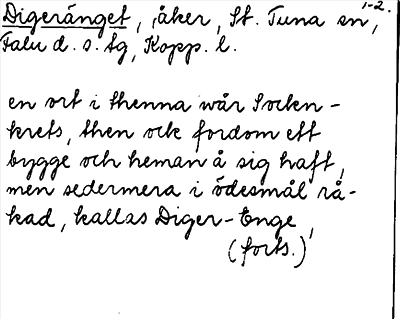 1-2.
Digeränget, åker, St. Tuna sn,
Falu d. s. tg, Kopp. l.
en ort i thenna wår Socken-
krets, then ock fordom ett
bygge och heman å sig haft,
men sedermera i ödesmål rå-
kad, kallas Diger-Enge,
(forts.)